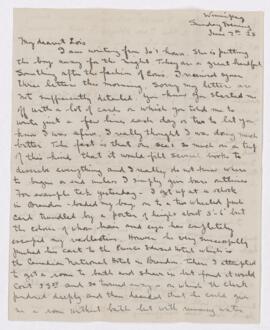 Winnipeg
Sunday Evening
June 7th 25
My dearest Lois
I am writing from Jo's house. She is putting
the boy away for the night. They are a great handful
Something after the fashion of Lois. I received your
three letters this morning. Sorry my letters are
not sufficiently detailed. You know you started me
off with a lot of cards on which you told me to
write just a few lines each day or two to let you
know I was alive. I really thought I was doing much
better. The fact is that one sees so much on a trip
of this kind that it would fill several books to
describe everything and I really do not know where
to begin or end unless I simply give bare outlines
For example take yesterday - I got up at 6 oclock
in Brandon - loaded my bag on to a two wheeled push
cart trundled by a porter of height about 5'6" but
the colour of whose hair and eyes has completely
escaped my recollection. However he very successfully
pushed his cart to the Prince Edward Hotel which is
the Canadian National Hotel in Brandon. Then I attempted
to get a room to bath and shave in but found it would
cost 3.50 and so turned away - on which the clerk
pondered deeply and then decided that he could give
me a room without bath but with running water